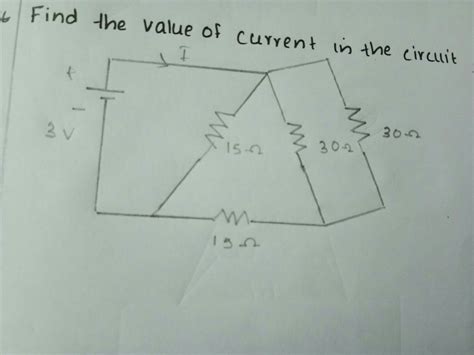 6 Find the value of current in the circuit
I
+
-
3 V
15Ω
30Ω
30Ω
15Ω